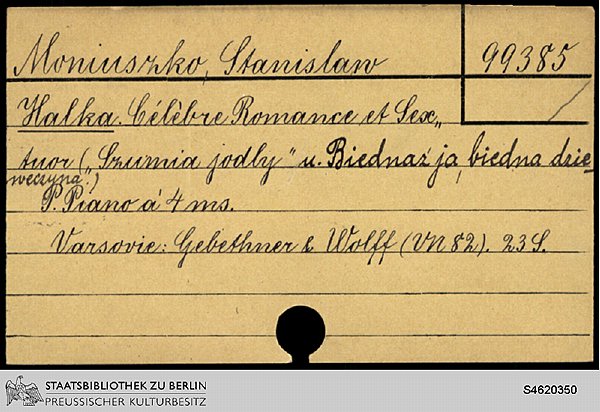 Moniuszko, Stanislaw 99385
Halka. Célèbre Romance et Sex„
tuor („Szumia jodly" u. Biednaż ja, biedna dzie=
weczyna".)
P. Piano à 4 ms.
Varsovie: Gebethner & Wolff (VN 82). 23 S.
STAATSBIBLIOTHEK ZU BERLIN
PREUSSISCHER KULTURBESITZ
S4620350